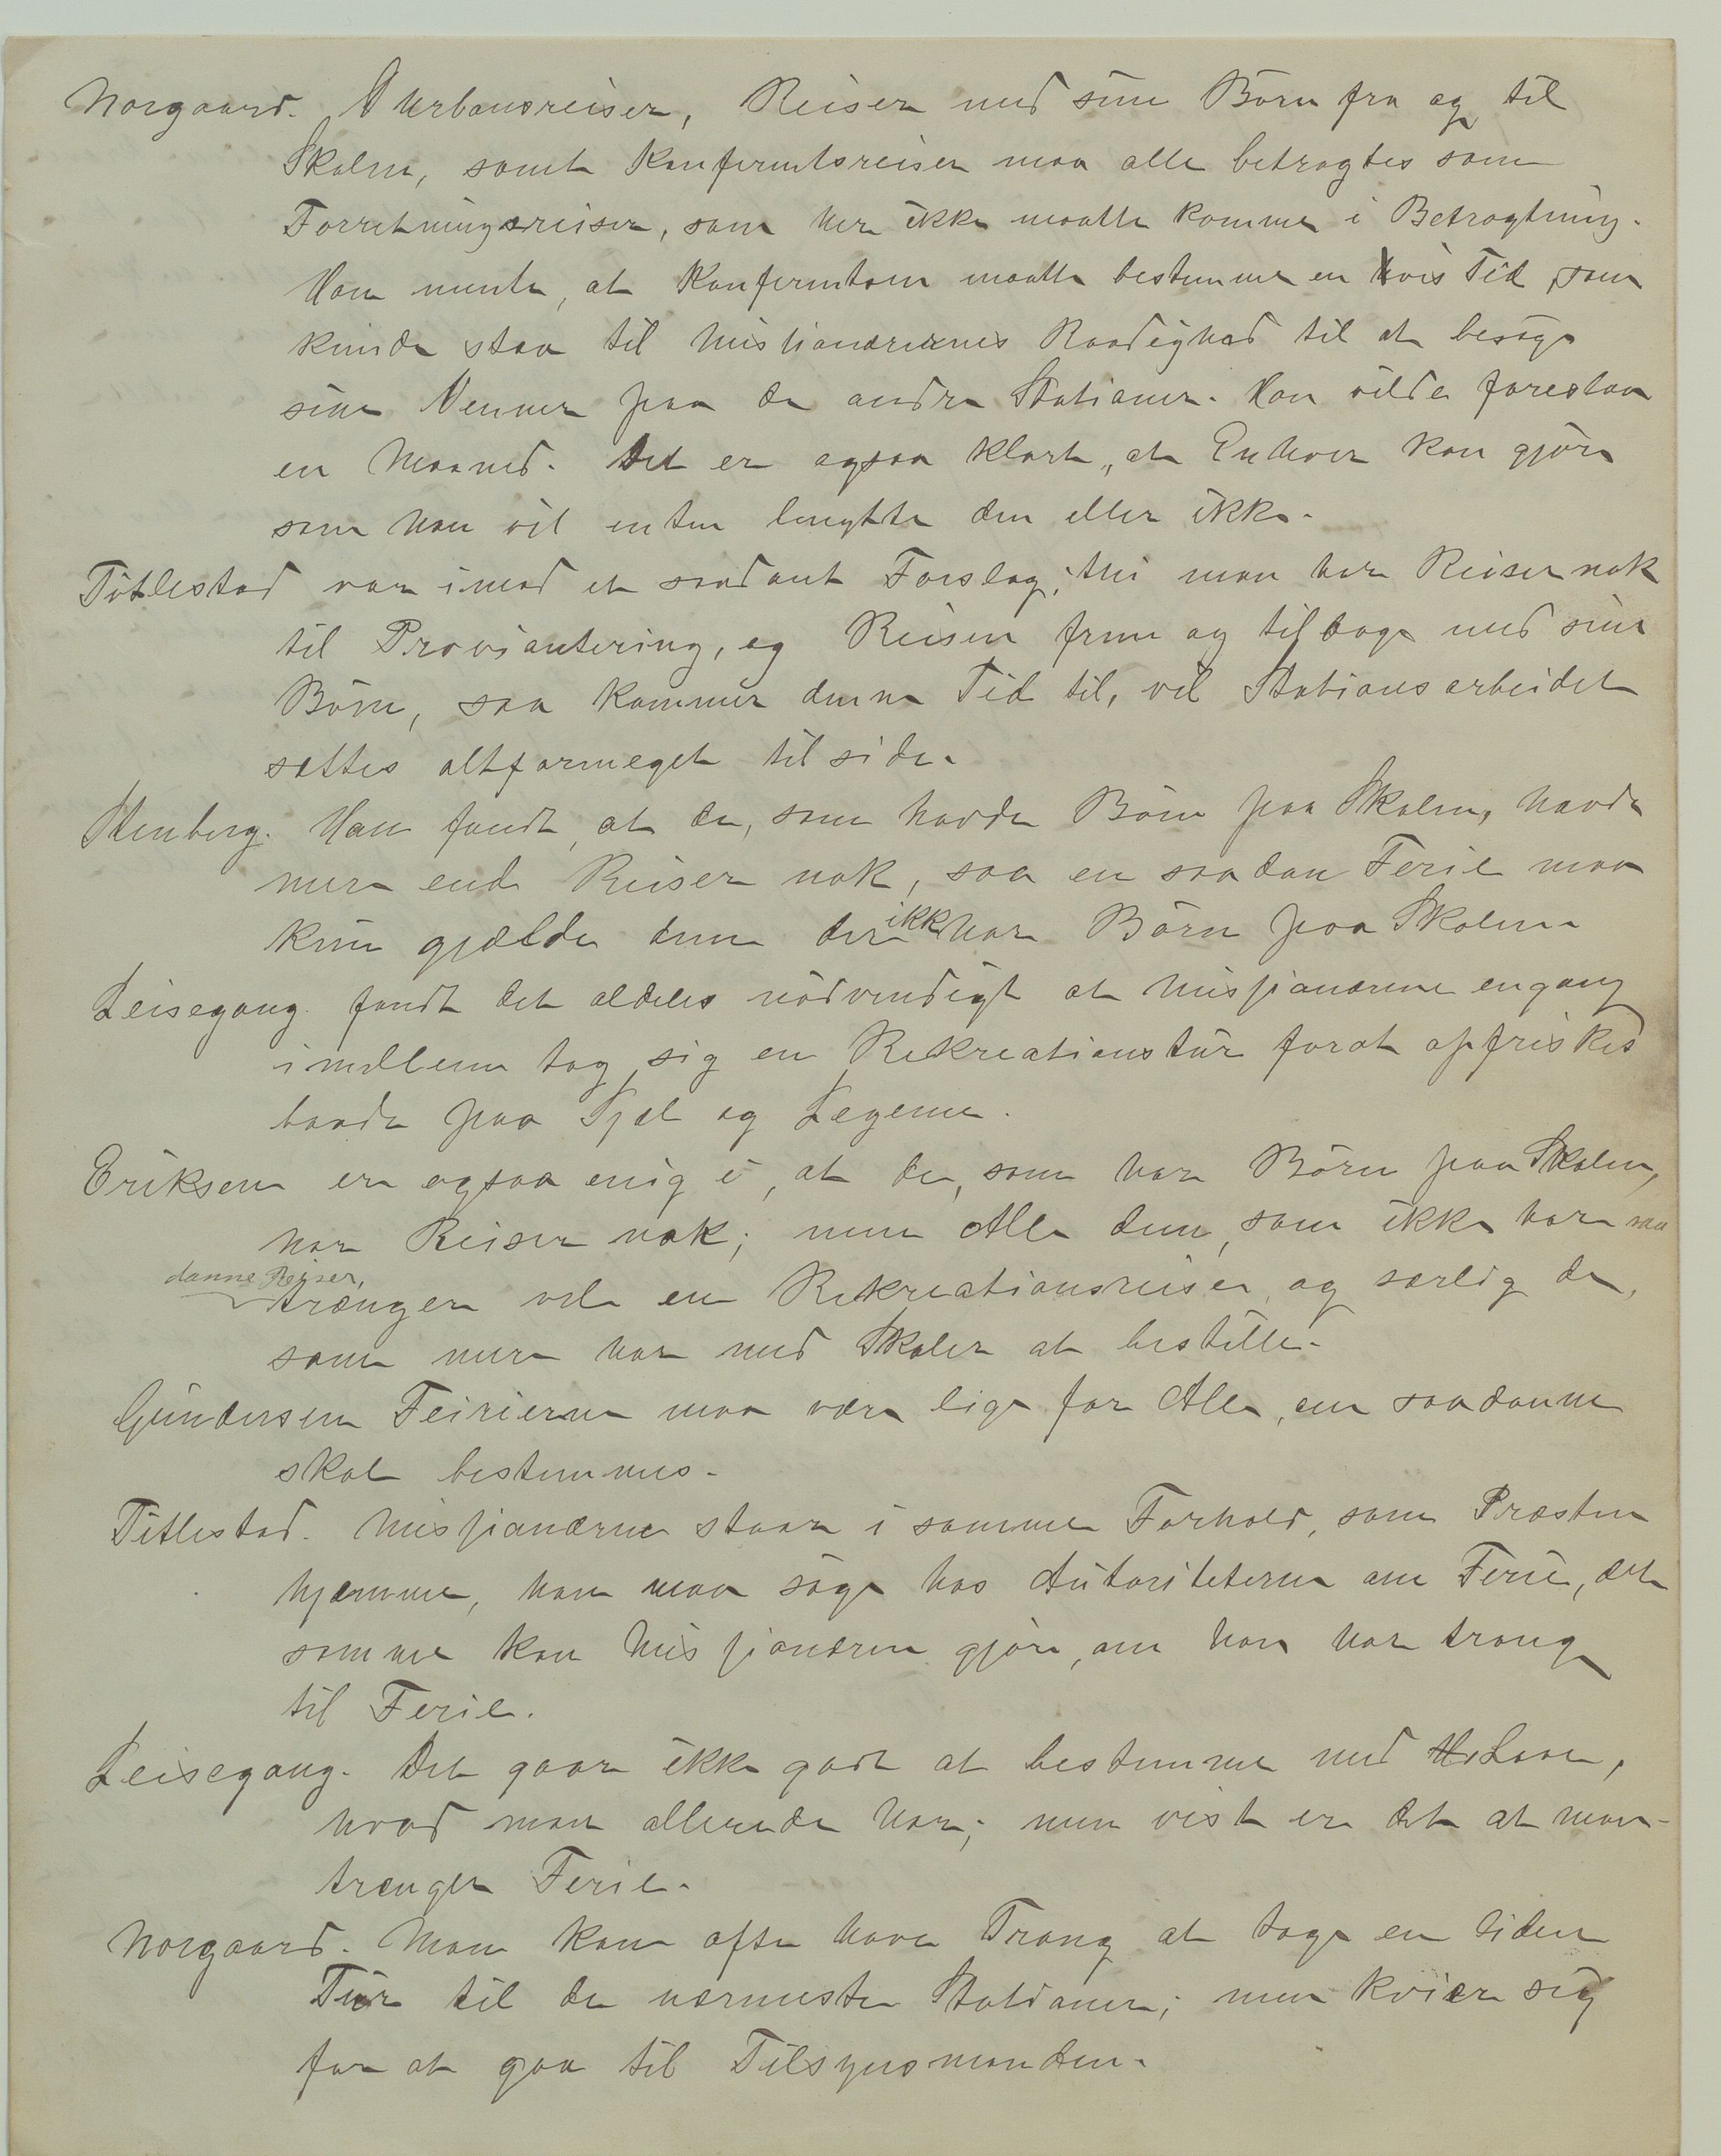 Norgaard. Durbansreiser, Reiser med sine Börn fra og til
Skolen, samt Konferentsreiser maa alle betragtes som
Forretningsreiser, som her ikke maatte komme i Betragtning.
Han mente, at Konferentsen maatte bestemme en vis Tid, som
kunde staa til Missionærernes Raadighed til at besöge
sine Venner paa de andre Stationer. Han vilde foreslaa
en Maaned. Det er ogsaa klart, at Enhver kan gjöre
som han vil enten benytte den eller ikke.
Titlestad var imod et saadant Forslag, thi man har Reiser nok
til Proviantering, og Reisen frem og tilbage med sine
Börn, saa kommer denne Tid til, vil Stationsarbeidet
sættes altformeget tilside.
Stenberg. Han fandt, at de, som havde Börn paa Skolen, havde
mere end Reiser nok, saa en saadan Ferie maa
kun gjælde dem der ikke har Börn paa Skolen.
Leisegang. fandt det aldeles nödvendigt at Missionærerne engang
imellem tog sig en Rekreationstur forat opfriskes
baade paa Sjæl og Legeme.
Eriksen er ogsaa enig i, at de, som har Börn paa Skolen,
har Reiser nok; men Alle dem, som ikke har saa
danne Reiser,
trænger vel en Rekreationsreise, og særlig de,
som mere har med Skoler at bestille.
Gundersen Feirierne maa være lige for Alle, om saadanne
skal bestemmes.
Titlestad. Missionærerne staar i samme Forhold, som Præsten
hjemme, han maa söge hos Autoriteterne om Ferie, det
samme kan Missionæren gjöre, om han har trang
til Ferie.
Leisegang. Det gaar ikke godt at bestemme ved Love,
hvad man allerede har; men vist er det at man
trænger Ferie.
Norgaard. Man kan ofte have Trang at tage en liden
Tur til de nærmeste Stationer; men kvier sig
for at gaa til Tilsynsmanden.